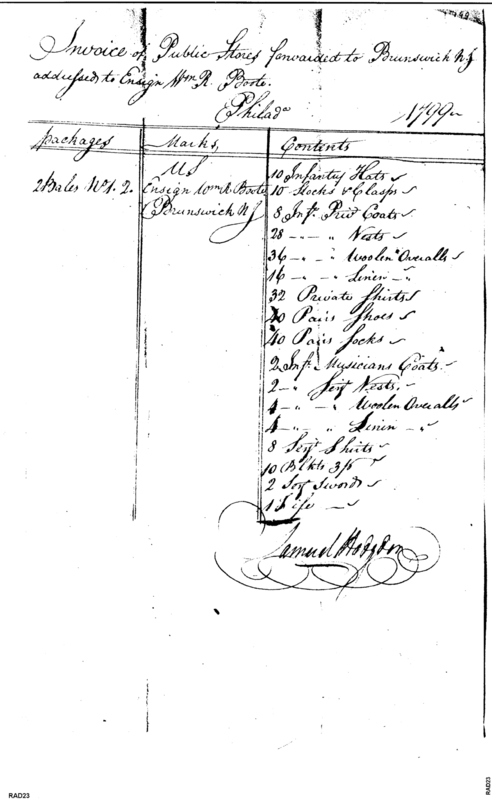 Invoice of Public Stores forwarded to Brunswick NJ
addressed to Ensign Wm R. Boote.
Philada 1799
packages Marks, Contents
US 10 Infantry Hats
2 Bales No 1. 2. Ensign Wm R Boote 10 Stocks & Clasps
Brunswick NJ 8 Inf. Priv Coats
28 " " Vests
36 " " Woolen Overalls
16 " " Linen "
32 Private Shirts
40 Pairs Shoes
40 Pairs Socks
2 Inf. Musicians Coats
2 " Serj Vests.
4 " " Woolen Overalls
4 " " Linen "
8 Serjt Shirts
10 Blkts 3 pt
2 Serj Swords
1 Fife
Samuel Hodgdon
RAD23
RAD23